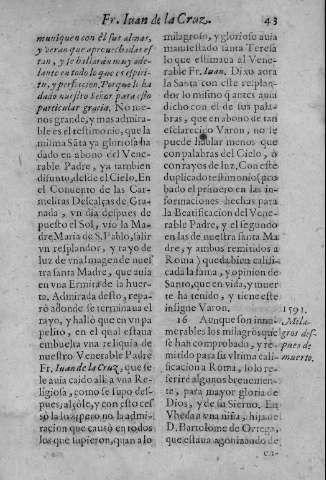 Fr. Iuan de la Cruz. 43
muniquen con èl sus almas,
y veràn que aprouechadas es-
tan, y se hallaràn muy ade-
lante en todo lo que es espiri-
tu, y perfeccion. Porque le ha
dado nuestro Señor para esto
particular gracia. No me-
nos grande, y mas admira-
ble es el testimonio, que la
misma Sāta ya gloriosa ha
dado en abono del Vene-
rable Padre, ya tambien
difunto, desde el Cielo. En
el Conuento de las Car-
melitas Descalças de Gra-
nada, vn dia despues de
puesto el Sol, viò la Ma-
dre Maria de S. Pablo, salir
vn resplandor, y rayo de
luz de vna Imagen de nues-
tra santa Madre, que auia
en vna Ermita de la huer-
ta. Admirada desto, repa-
rò adonde se terminaua el
rayo, y hallò que en vn pa-
pelito, en el qual estaua
embuelta vna reliquia de
nuestro Venerable Padre
Fr. Iuan de la Cruz, que se
le auia caido allí a vna Re-
ligiosa, como se supo des-
pues, alçòle, y con esto ces-
sò la luz, pero no la admi-
racion que causò en todos
los que supieron, quan alo
milagroso, y glorioso auia
manifestado santa Teresa
lo que estimaua al Venera-
ble Fr. Iuan. Dixo aora
la Santa con este resplan-
dor lo mismo q̄ antes auia
dicho con èl de sus pala-
bras, que en abono de tan
esclarecido Varon, no se
puede hablar menos que
con palabras del Cielo, ò
con rayos de luz. Con este
duplicado testimonio (pro-
bado el primero en las in-
formaciones hechas para
la Beatificacion del Vene-
rable Padre, y el segundo
en las de nuestra santa Ma-
dre, y ambos remitidos a
Roma) queda bien califi-
cada la fama, y opinion de
Santo, que en vida, y muer-
te ha tenido, y tiene este
insigne Varon.
16 Aunque son innu-
merables los milagros que
se han comprobado, y re-
mitido para su vltima cali-
ficacion a Roma, solo re-
ferirè algunos breuemen-
te, para mayor gloria de
Dios, y de su Sieruo. En
Vbeda vna niña, hija de
D. Bartolome de Ortega,
que estaua agonizando de
ca-
1591.
Mila-
gros des-
pues de
muerto.